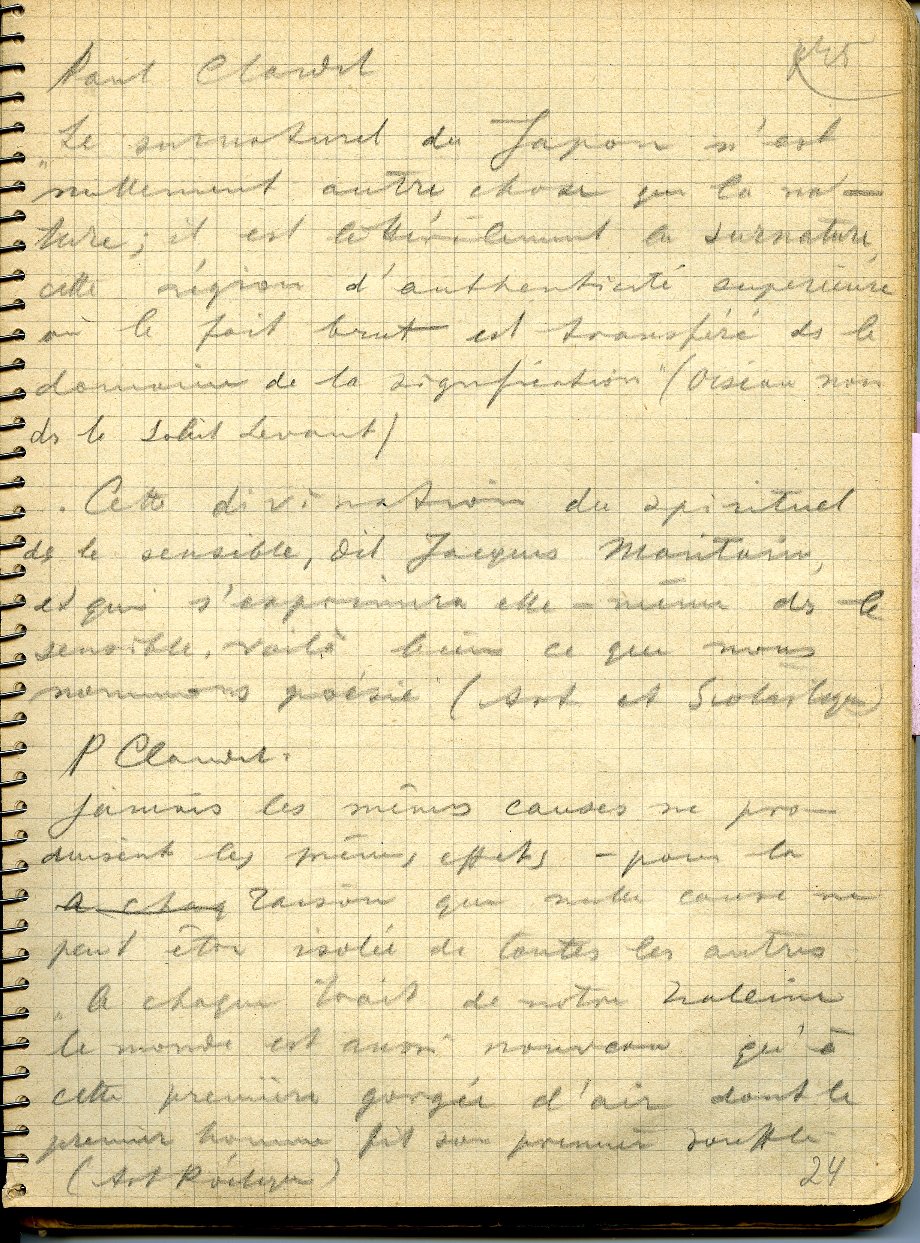 Paul Claudel
"Le surnaturel du Japon n'est
nullement autre chose que la na-
ture; il est littéralement la surnature,
cette région d'authenticité supérieure
où le fait brut est transféré ds le
domaine de la signification" (Oiseau noir
ds le Soleil Levant)
. Cette divination du spirituel
ds le sensible, dit Jacques Maritain,
et qui s'exprimera elle-même ds le
sensible, voilà bien ce que nous
nommons poésie (Art et Scolastique)
P Claudel.
jamais les mêmes causes ne pro-
duisent les mêmes effets - pour la
A chaq raison que nulle cause ne
peut être isolée de toutes les autres
"A chaque trait de notre haleine
le monde est aussi nouveau qu'à
cette première gorgée d'air dont le
premier homme fit son premier souffle
(Art Poétique)
24